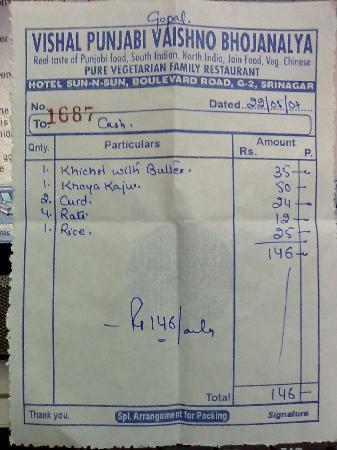 Gopal.
VISHAL PUNJABI VAISHNO BHOJANALYA
Real taste of Punjabi food, South Indian, North India, Jain Food, Veg. Chinese
PURE VEGETARIAN FAMILY RESTAURANT
HOTEL SUN-N-SUN, BOULEVARD ROAD, G-2, SRINAGAR
No. 1687 Dated.. 22/05/07
To: Cash.
Qnty. Particulars Amount
Rs. P.
1. Khichri with Butter. 35
1. Khoya Kaju. 50
2. Curd. 24
4. Roti 12
1. Rice. 25
146
Rs 146/only
Total 146
Thank you. Spl. Arrangement for Packing Signature